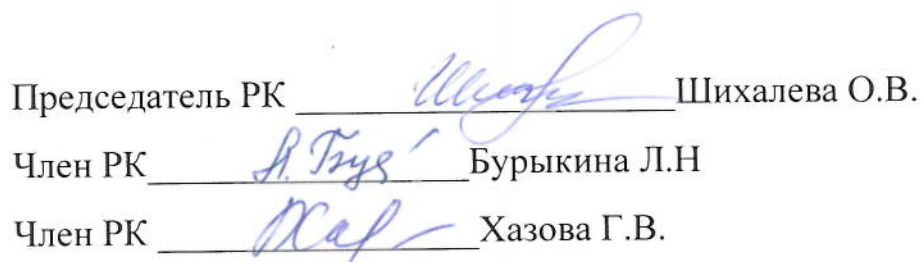 Председатель РК ____________Шихалева О.В.
Член РК____________Бурыкина Л.Н
Член РК ____________Хазова Г.В.